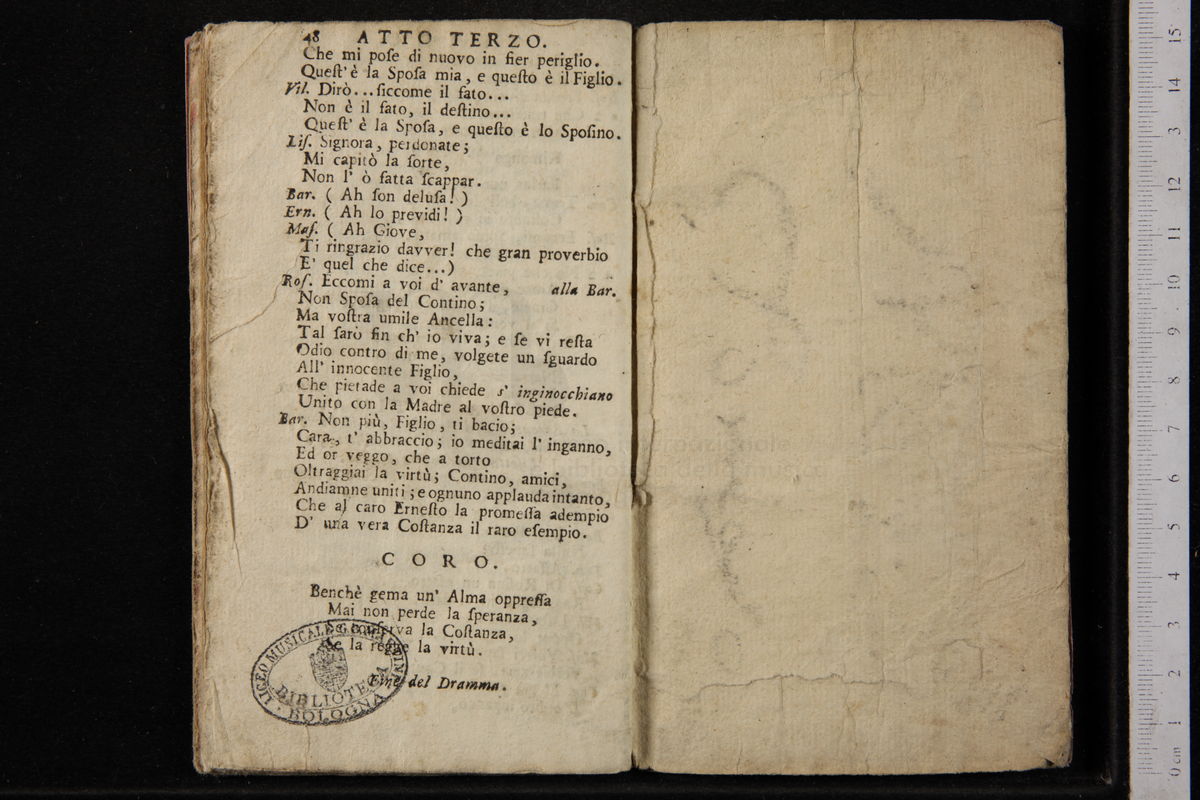 48 ATTO TERZO.
Che mi poſe di nuovo in fier periglio.
Queſt' è la Spoſa mia, e queſto è il Figlio.
Vil. Dirò...ſiccome il fato...
Non è il fato, il deſtino...
Queſt' è la Spoſa, e queſto è lo Spoſino.
Liſ. Signora, perdonate;
Mi capitò la ſorte,
Non l' ò fatta ſcappar.
Bar. ( Ah ſon deluſa! )
Ern. ( Ah lo previdi! )
Maſ. ( Ah Giove,
Ti ringrazio davver! che gran proverbio
E' quel che dice...)
Roſ. Eccomi a voi d' avante, alla Bar.
Non Spoſa del Contino;
Ma voſtra umile Ancella:
Tal farò fin ch' io viva; e ſe vi reſta
Odio contro di me, volgete un ſguardo
All' innocente Figlio,
Che pietade a voi chiede s' inginocchiano
Unito con la Madre al voſtro piede.
Bar. Non più, Figlio, ti bacio;
Cara, t' abbraccio; io meditai l' inganno,
Ed or veggo, che a torto
Oltraggiai la virtù; Contino, amici,
Andiamne uniti; e ognuno applauda intanto,
Che al caro Erneſto la promeſſa adempio
D' una vera Coſtanza il raro eſempio.
CORO.
Benchè gema un' Alma oppreſſa
Mai non perde la ſperanza,
la Coſtanza,
la regge la virtù.
Fine del Dramma.
LICEO MUSICALE G.B. MARTINI
BIBLIOTECA
BOLOGNA
0 cm 1 2 3 4 5 6 7 8 9 10 11 12 3 14 15